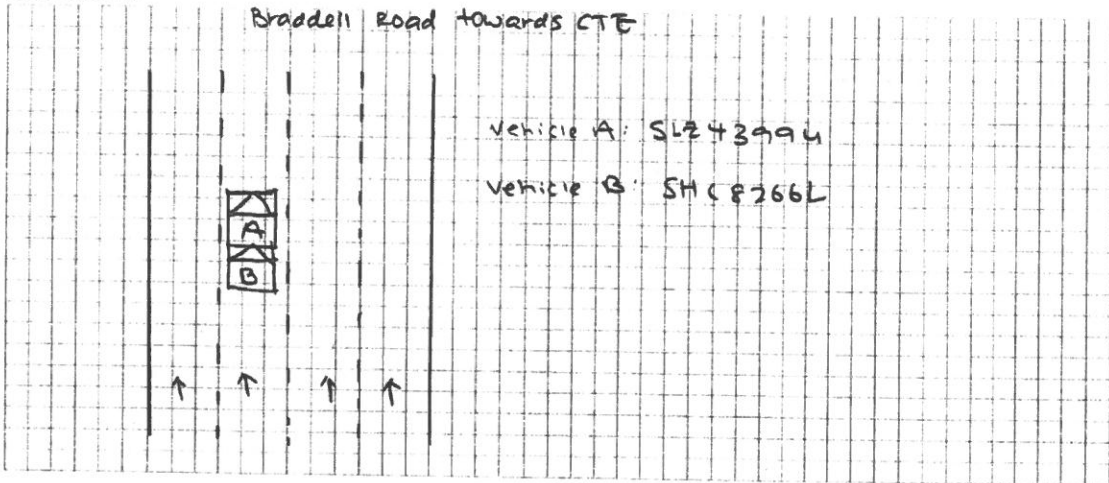 Braddell Road towards CTE
Vehicle A: SLZ4399U
Vehicle B: SHC8266L
A
B